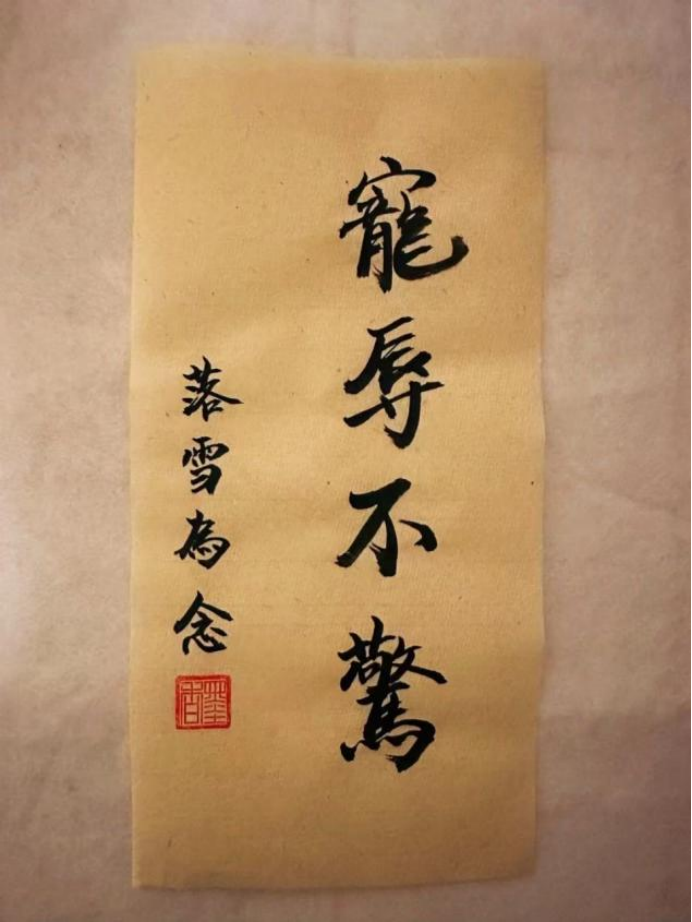 寵辱不驚
落雪為念